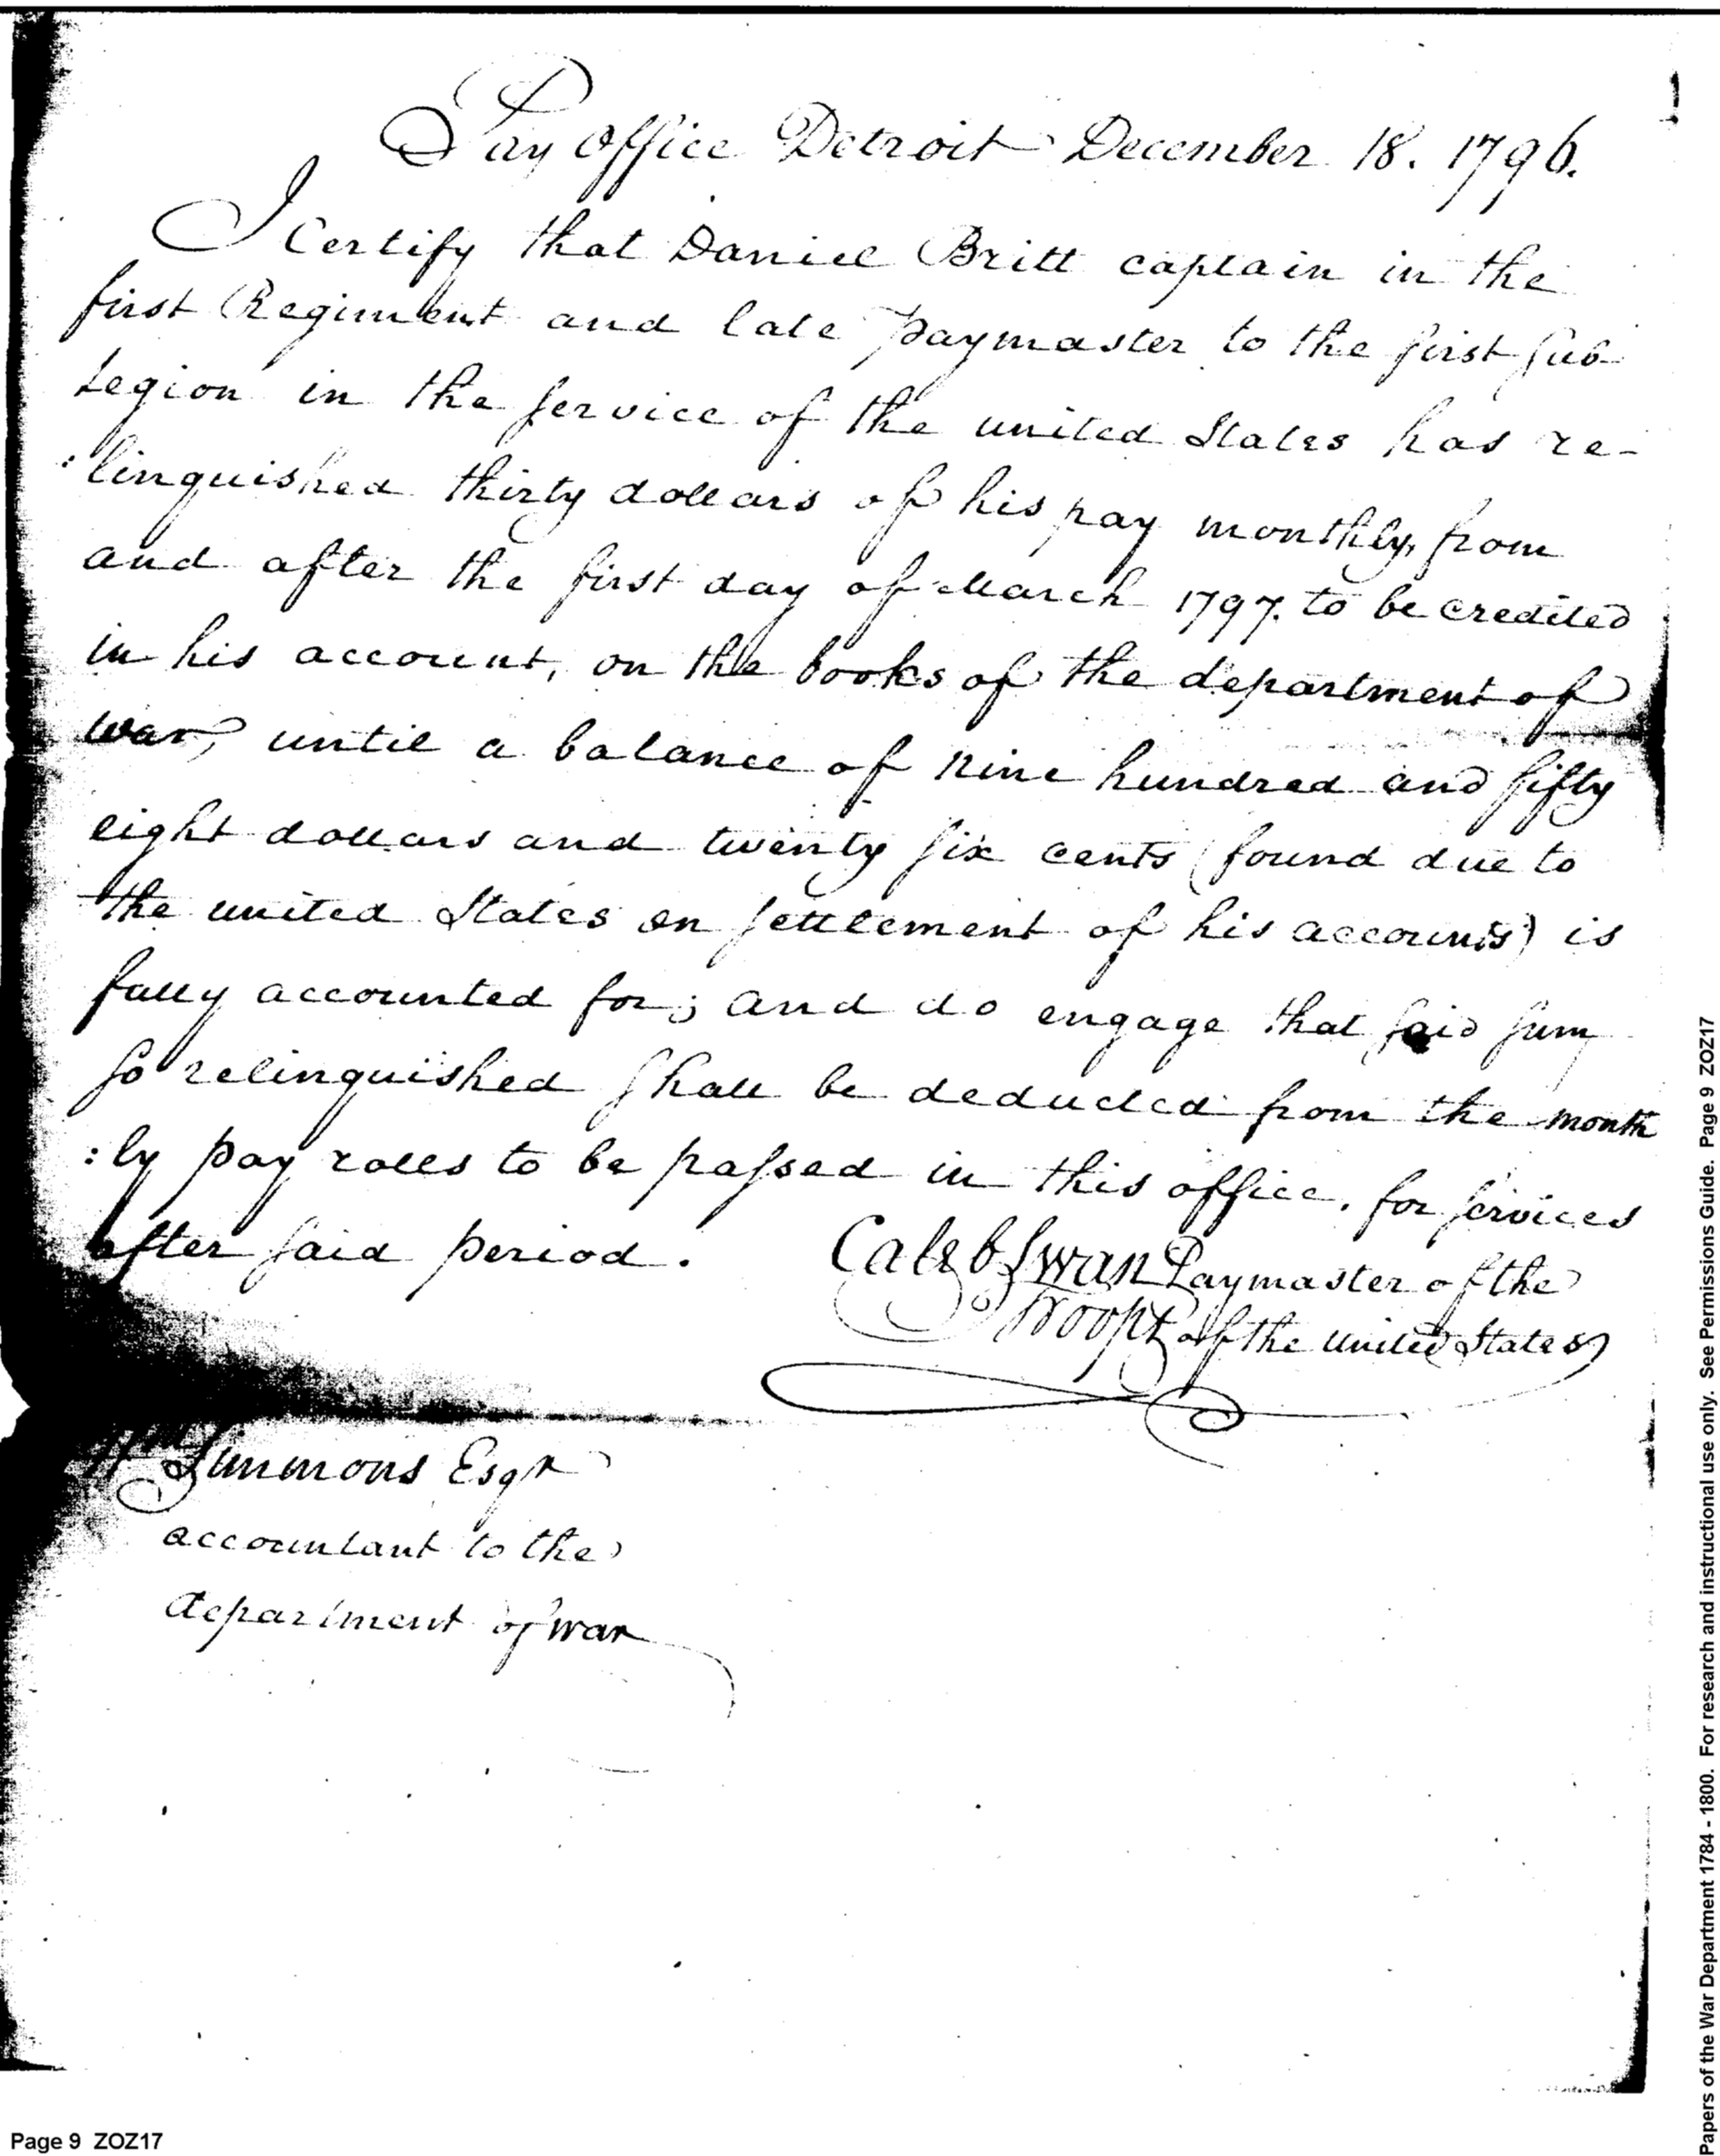 Pay Office Detroit December 18. 1796.
I Certify that Daniel Britt captain in the
first Regiment and late paymaster to the first sub
Legion in the service of the united States has re-
:linquished thirty dollars of his pay monthly, from
and after the first day of March 1797. to be credited
in his account, on the books of the department of
war, until a balance of nine hundred and fifty
eight dollars and twenty six cents (found due to
the united States on settlement of his accounts) is
fully accounted for; and do engage that said sum
so relinquished shall be deducted from the month
:ly pay rolls to be passed in this office, for services
after said period.
Caleb Swan Paymaster of the
Troops of the United States
Wm Simmons Esqr
accountant to the
department of war
Page 9 ZOZ17
Papers of the War Department 1784 - 1800. For research and instructional use only. See Permissions Guide. Page 9 ZOZ17